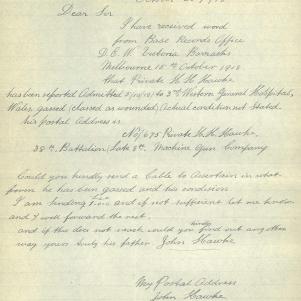 Dear Sir
I have received word
from Base Records Office
D.E.W. Victoria Barracks
Melbourne 15th October 1918
that Private H H Hawke
has been reported Admitted 5/10/18 to 3rd Western General Hospital,
Wales, gassed (classed as wounded) Actual condition not stated
his Postal Address is
No 675 Private H. H. Hawke,
38th Battalion (Late 8th Machine Gun Company
Could you kindly send a Cable to Ascertain in what
form he has been gassed and his condision
I am sending and if not sufficient let me know
and I will forward the rest.
and if this dos not reach could you kindly find out any other
way yours truly his father. John Hawke
My Postal Address
John Hawke